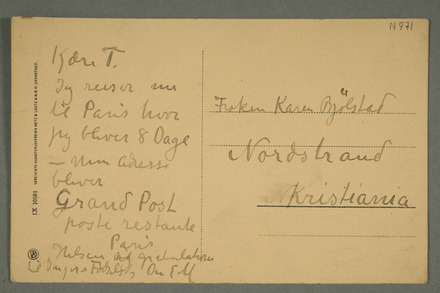 N 971
Kjære T.
Jeg reiser nu
til Paris hvor
jeg bliver 8 Dage
– min adresse
bliver
Grand Post
poste restante
Paris
Hilsen og gratulation
til Inger's Din EM
Frøken Karen Bjølstad
Nordstrand
Kristiania
IX 10591